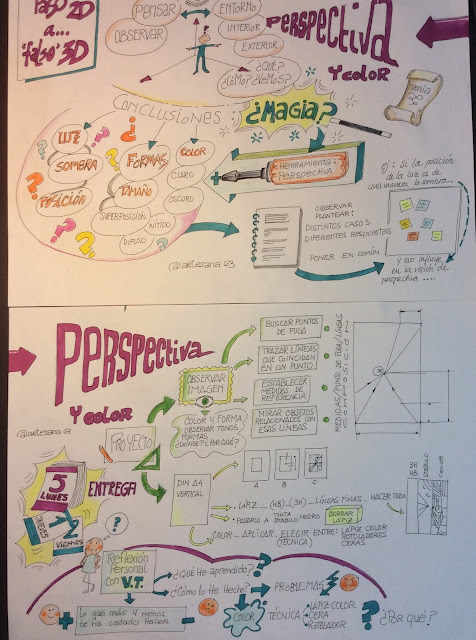 PASO 2D
a...
'falso' 3D
PENSAR
OBSERVAR
ENTORNO
INTERIOR
EXTERIOR
¿QUÉ?
¿CÓMO? ¿VEMOS?
PERSPECTIVA
Y COLOR
CONCLUSIONES
¿MAGIA?
LUZ
SOMBRA
POSICIÓN
FORMAS
TAMAÑO
SUPERPOSICIÓN
DIFUSO
COLOR
CLARO
OSCURO
NÍTIDO
HERRAMIENTA:
PERSPECTIVA
OBSERVAR
PLANTEAR:
DISTINTOS CASOS
DIFERENTES RESPUESTAS
PONER EN COMÚN
ej: Si la posición
de la luz es de
una manera la sombra...
y eso influye
en la visión de
perspectiva....
@artesana 63
PERSPECTIVA
Y COLOR
@artesana 63
PROYECTO
OBSERVAR
IMAGEN
COLOR Y FORMA
OBSERVAR TONOS,
FORMAS
¿DÓNDE? ¿POR QUÉ?
BUSCAR PUNTOS
DE FUGA
TRAZAR LÍNEAS
QUE COINCIDAN
EN UN PUNTO
ESTABLECER
MEDIDAS DE
REFERENCIA
MIRAR OBJETOS
RELACIONADOS CON
ESAS LÍNEAS
MEDIDAS/PUNTO DE FUGA/LÍNEAS
COMPOSICIÓN
PF
5
LUNES
JUEVES
12
VIERNES
ENTREGA
DIN A4
VERTICAL
A B C
LÁPIZ (HB) (3H) LÍNEAS FINAS. HACER TODO
PASARLO A TINTA STABILO NEGRO
BORRAR
LÁPIZ
COLOR - APLICAR. ELEGIR ENTRE: LÁPIZ COLOR
(TÉCNICA) ROTULADORES
CERAS
3H
HB
STABILO
COLOR
Reflexión
Personal
con V.T.
¿Qué He aprendido?
¿Cómo lo He Hecho?
PROBLEMAS
Lo que más y menos
te ha costado hacer
COLOR
TÉCNICA
LÁPIZ COLOR
CERA
ROTULADOR
¿Por qué?